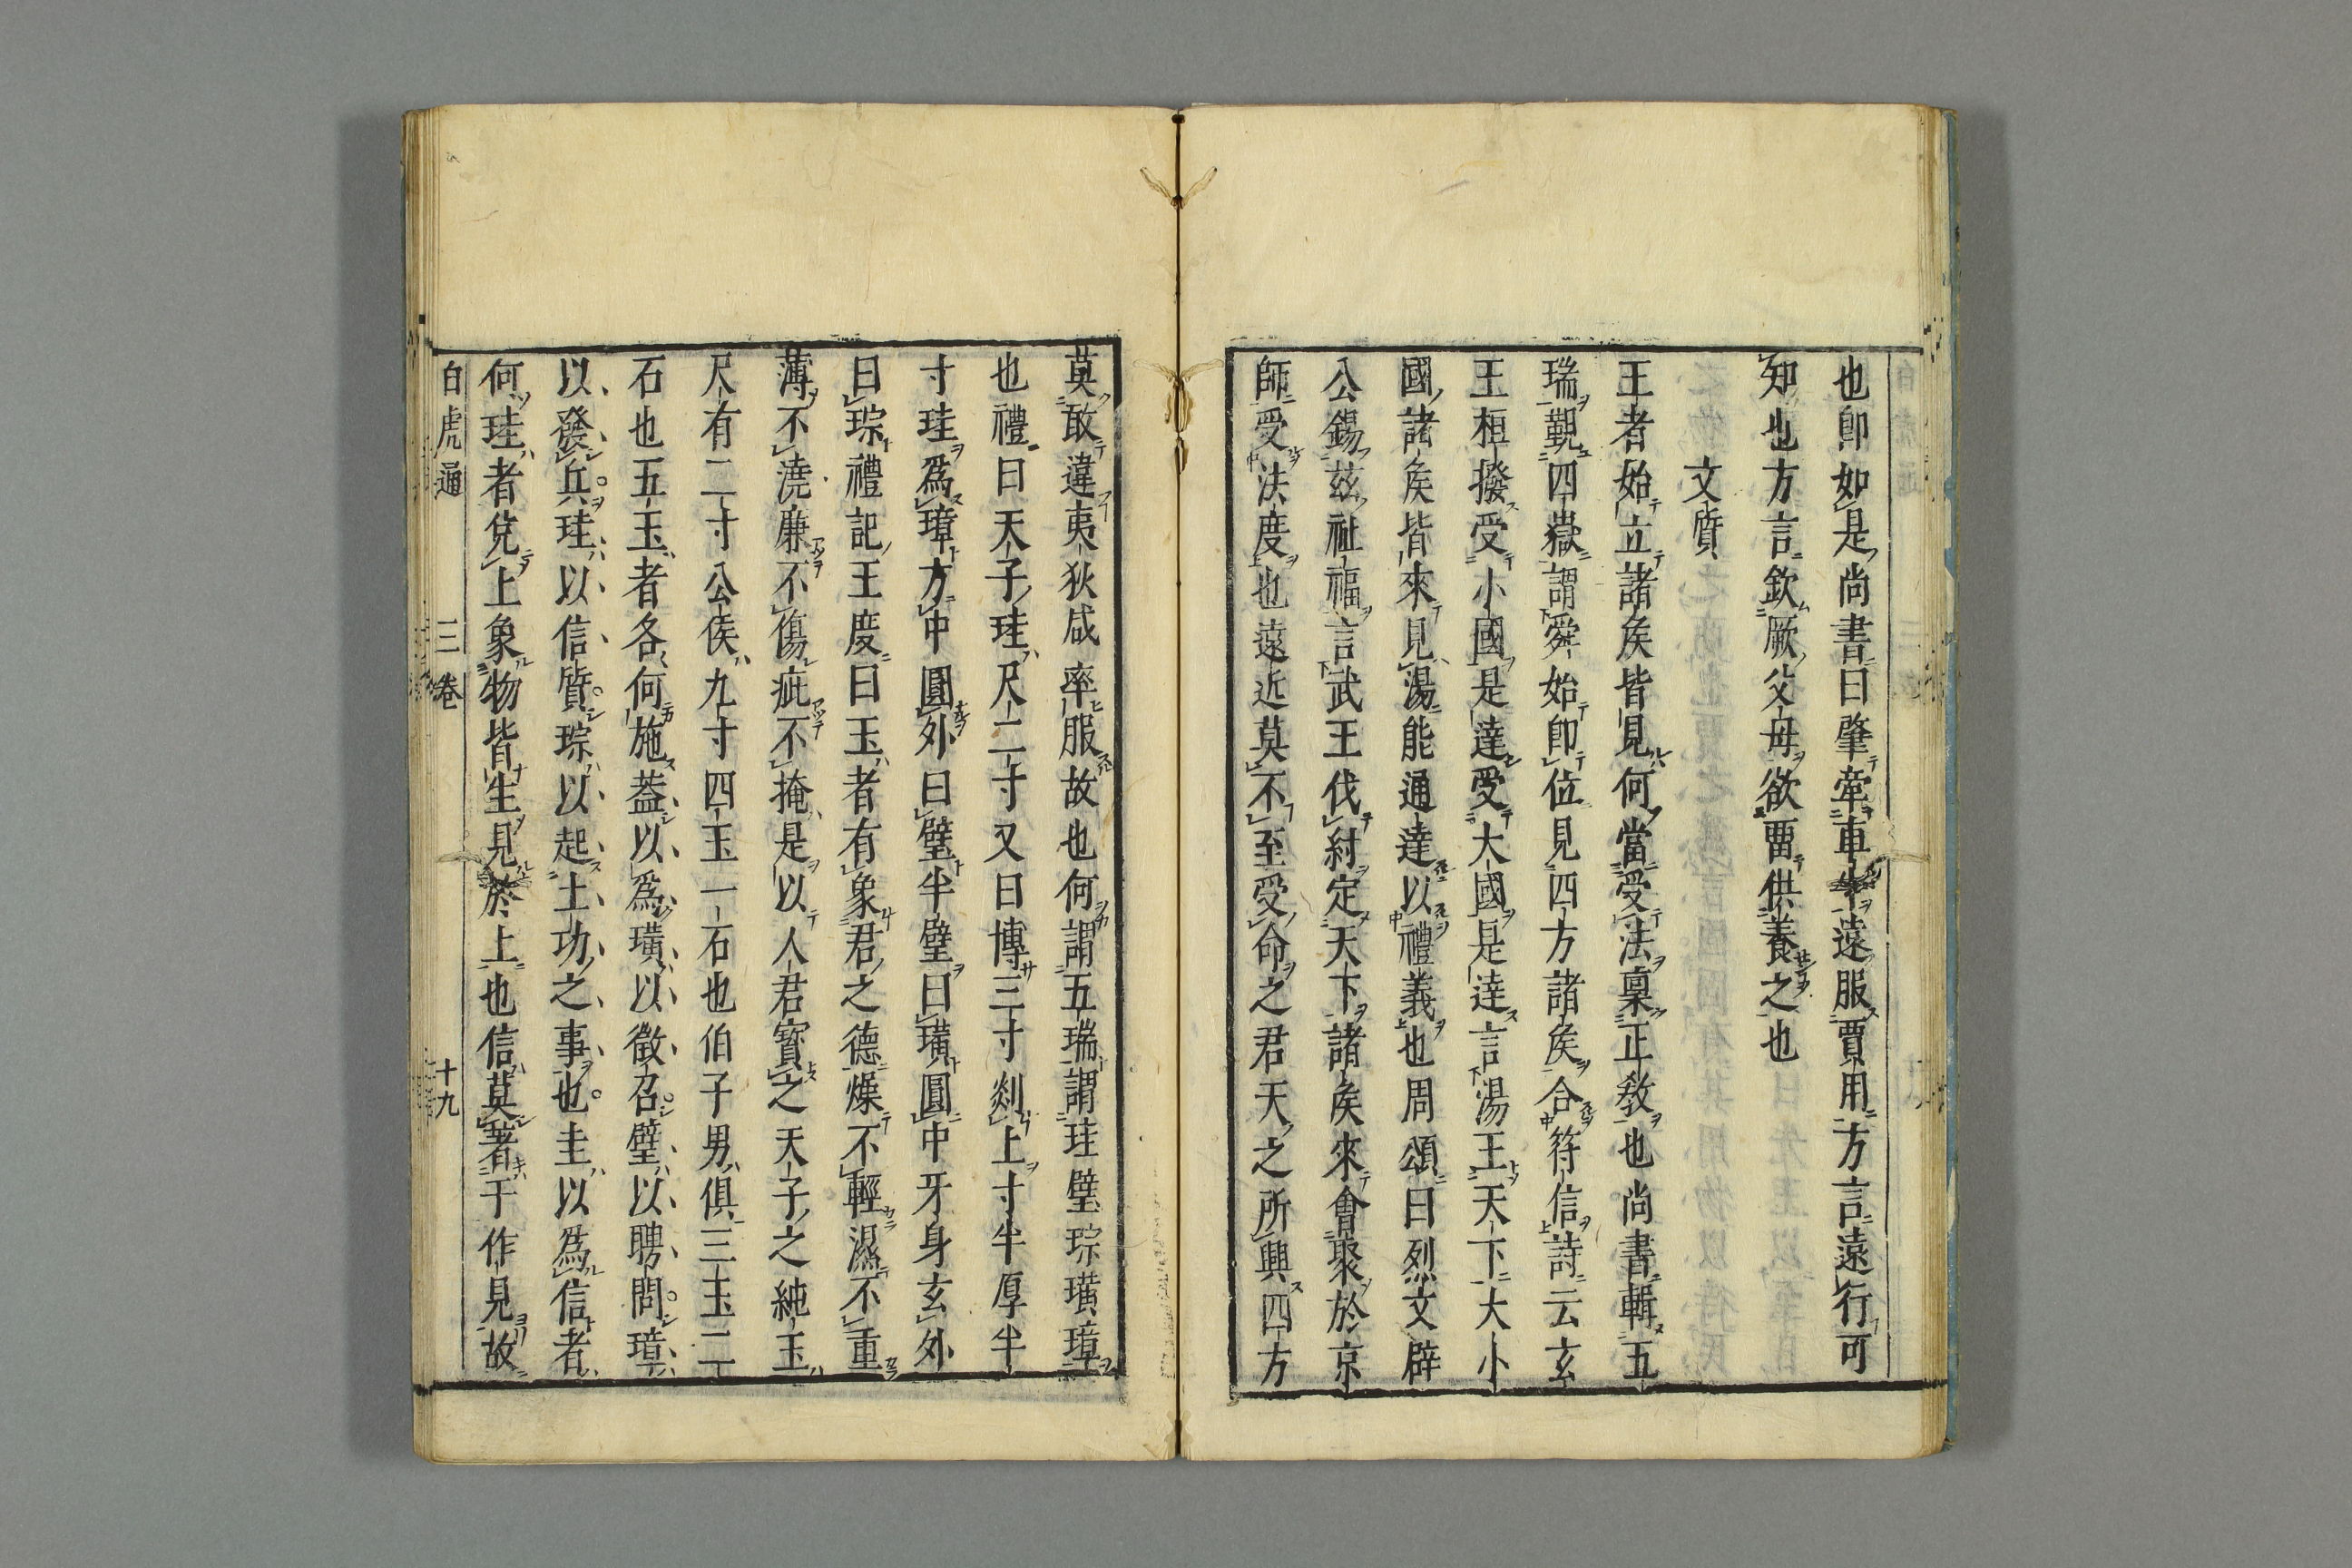 也卽如是尚書曰肇牽車牛遠服賈用方言遠行可
知也方言欽厥父母欲畱供養之也
文質
王者始立諸矦皆見何當受法稟正敎也尚書輯五
瑞覲四嶽謂舜始卽位見四方諸矦合符信詩云玄
王桓撥受小國是達受大國是達言湯王天下大小
國諸矦皆來見湯能通達以禮義也周頌曰烈文辟
公錫玆祉福言武王伐紂定天下諸矦來會聚於京
師受法度也遠近莫不至受命之君天之所興四方
莫敢違夷狄咸率服故也何謂五瑞謂珪璧琮璜璋
也禮曰天子珪尺二寸又曰博三寸剡上寸半厚半
寸珪爲璋方中圓外曰璧半璧曰璜圓中牙身玄外
曰琮禮記王度曰玉者有象君之德燥不輕濕不重
薄不澆廉不傷疵不掩是以人君寳之天子之純玉
尺有二寸公侯九寸四玉一石也伯子男俱三玉二
石也五玉者各何施葢以爲璜以徵召璧以聘問璋
以發兵珪以信質琮以起土功之事也圭以爲信者
何珪者兌上象物皆生見於上也信莫著于作見故
白虎通 三卷 十九